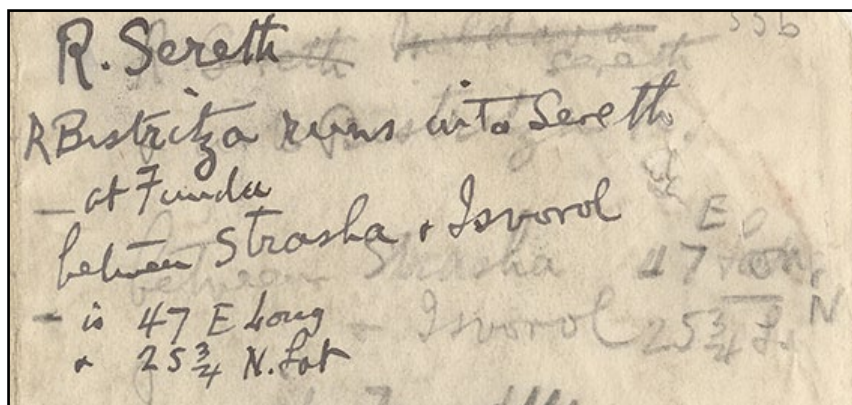 R. Sereth
R Bistritza runs into Sereth
— at Fundu
between Strasha & Isvorol
— is 47 E Long
& 25 3/4 N. Lat
55b